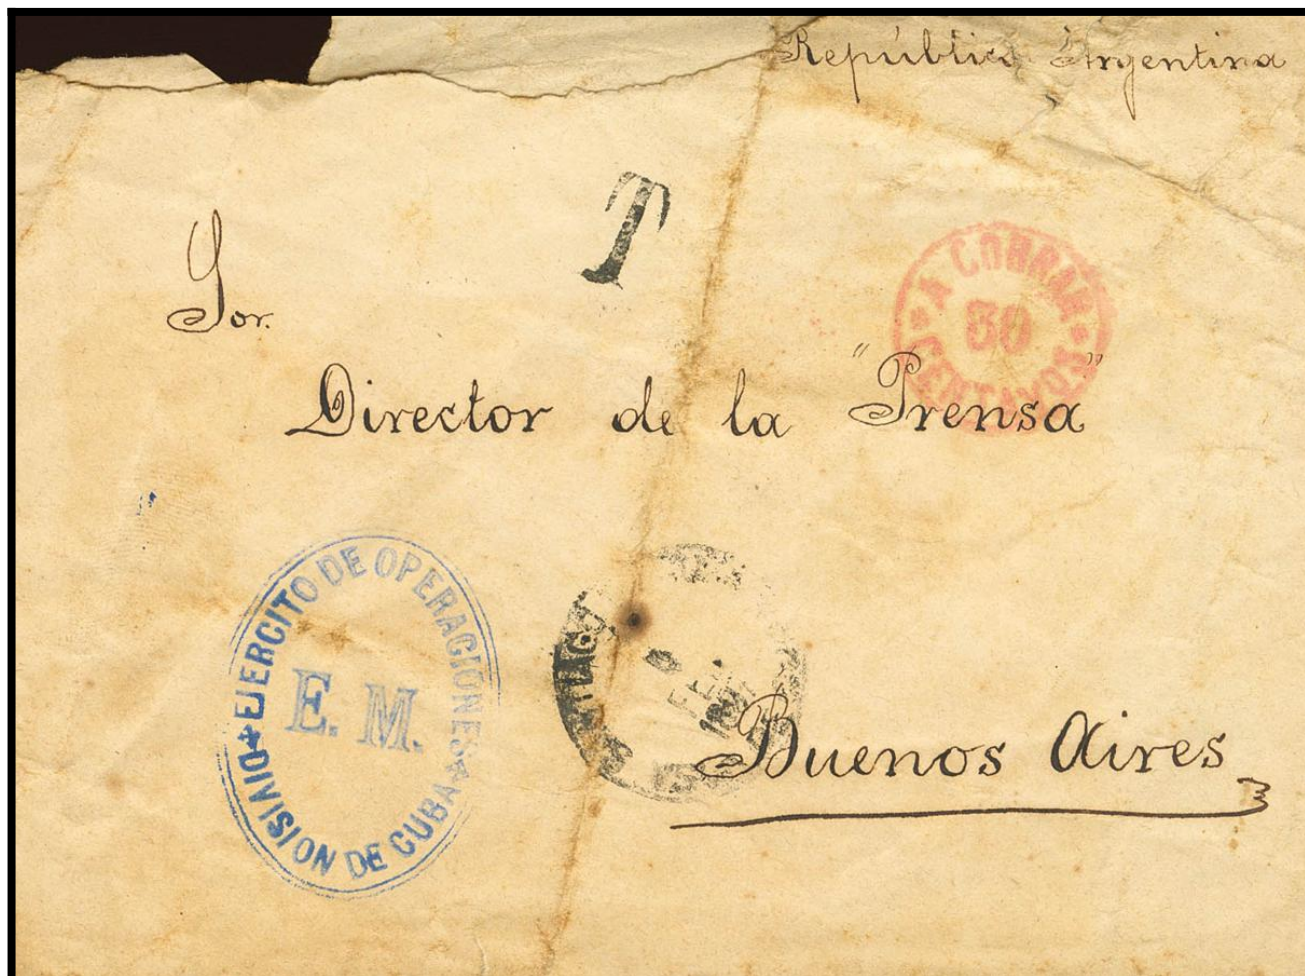 República Argentina
T
A COBRAR
30
CENTAVOS
Sor.
Director de la "Prensa"
EJERCITO DE OPERACIONES
E. M.
DIVISION DE CUBA
FEB
Buenos Aires